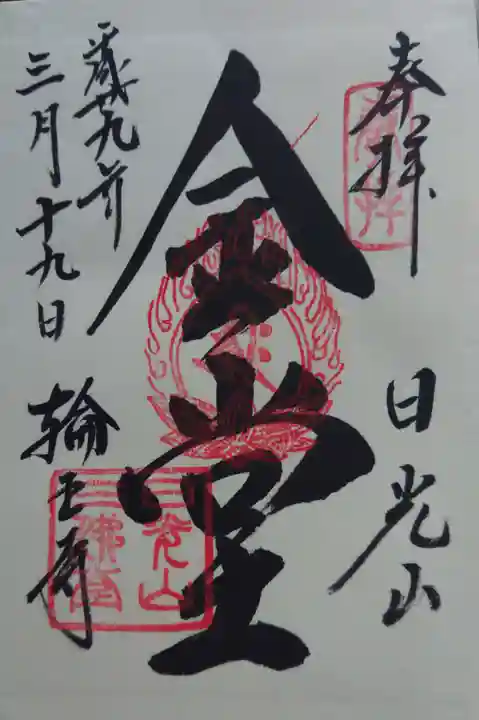 奉拝
日光山
金堂
平成廿九年
三月十九日
輪王寺